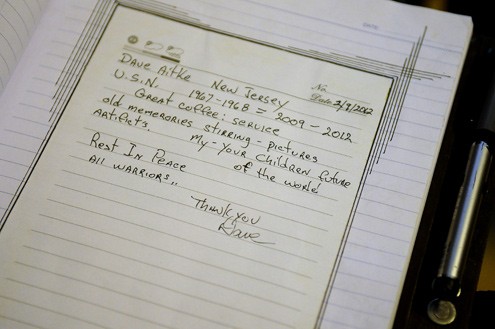 DATE
No.
Dave Aitke New Jersey Date 3/8/2012
U.S.N. 1967-1968 = 2009-2012
Great coffee; service
old memerories stirring - pictures
Artificts. My - your children future
Rest In Peace of the world
All WARRIORS..
Thank you
Dave